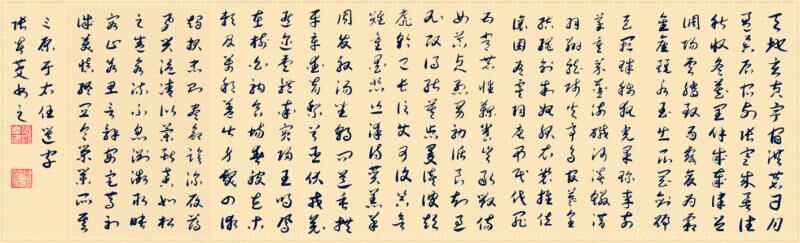 天地玄黃宇宙洪荒日月
盈昃辰宿列張寒來暑往
秋收冬藏閏餘成歲律呂
調陽雲騰致雨露結為霜
金生麗水玉出崑岡劍號
巨闕珠稱夜光果珍李柰
菜重芥薑海鹹河淡鱗潛
羽翔龍師火帝鳥官人皇
始制文字乃服衣裳推位
讓國有虞陶唐弔民伐罪
五常恭惟鞠養豈敢毀傷
女慕貞潔男效才良知過
必改得能莫忘罔談彼短
靡恃己長信使可覆器欲
難量墨悲絲染詩讚羔羊
周發殷湯坐朝問道垂拱
平章愛育黎首臣伏戎羌
遐邇壹體率賓歸王鳴鳳
在樹白駒食場化被草木
賴及萬方蓋此身髮四大
竭力忠則盡命臨深履薄
夙興溫凊似蘭斯馨如松
之盛川流不息淵澄取映
容止若思言辭安定篤初
誠美慎終宜令榮業所基
三原于右任選字